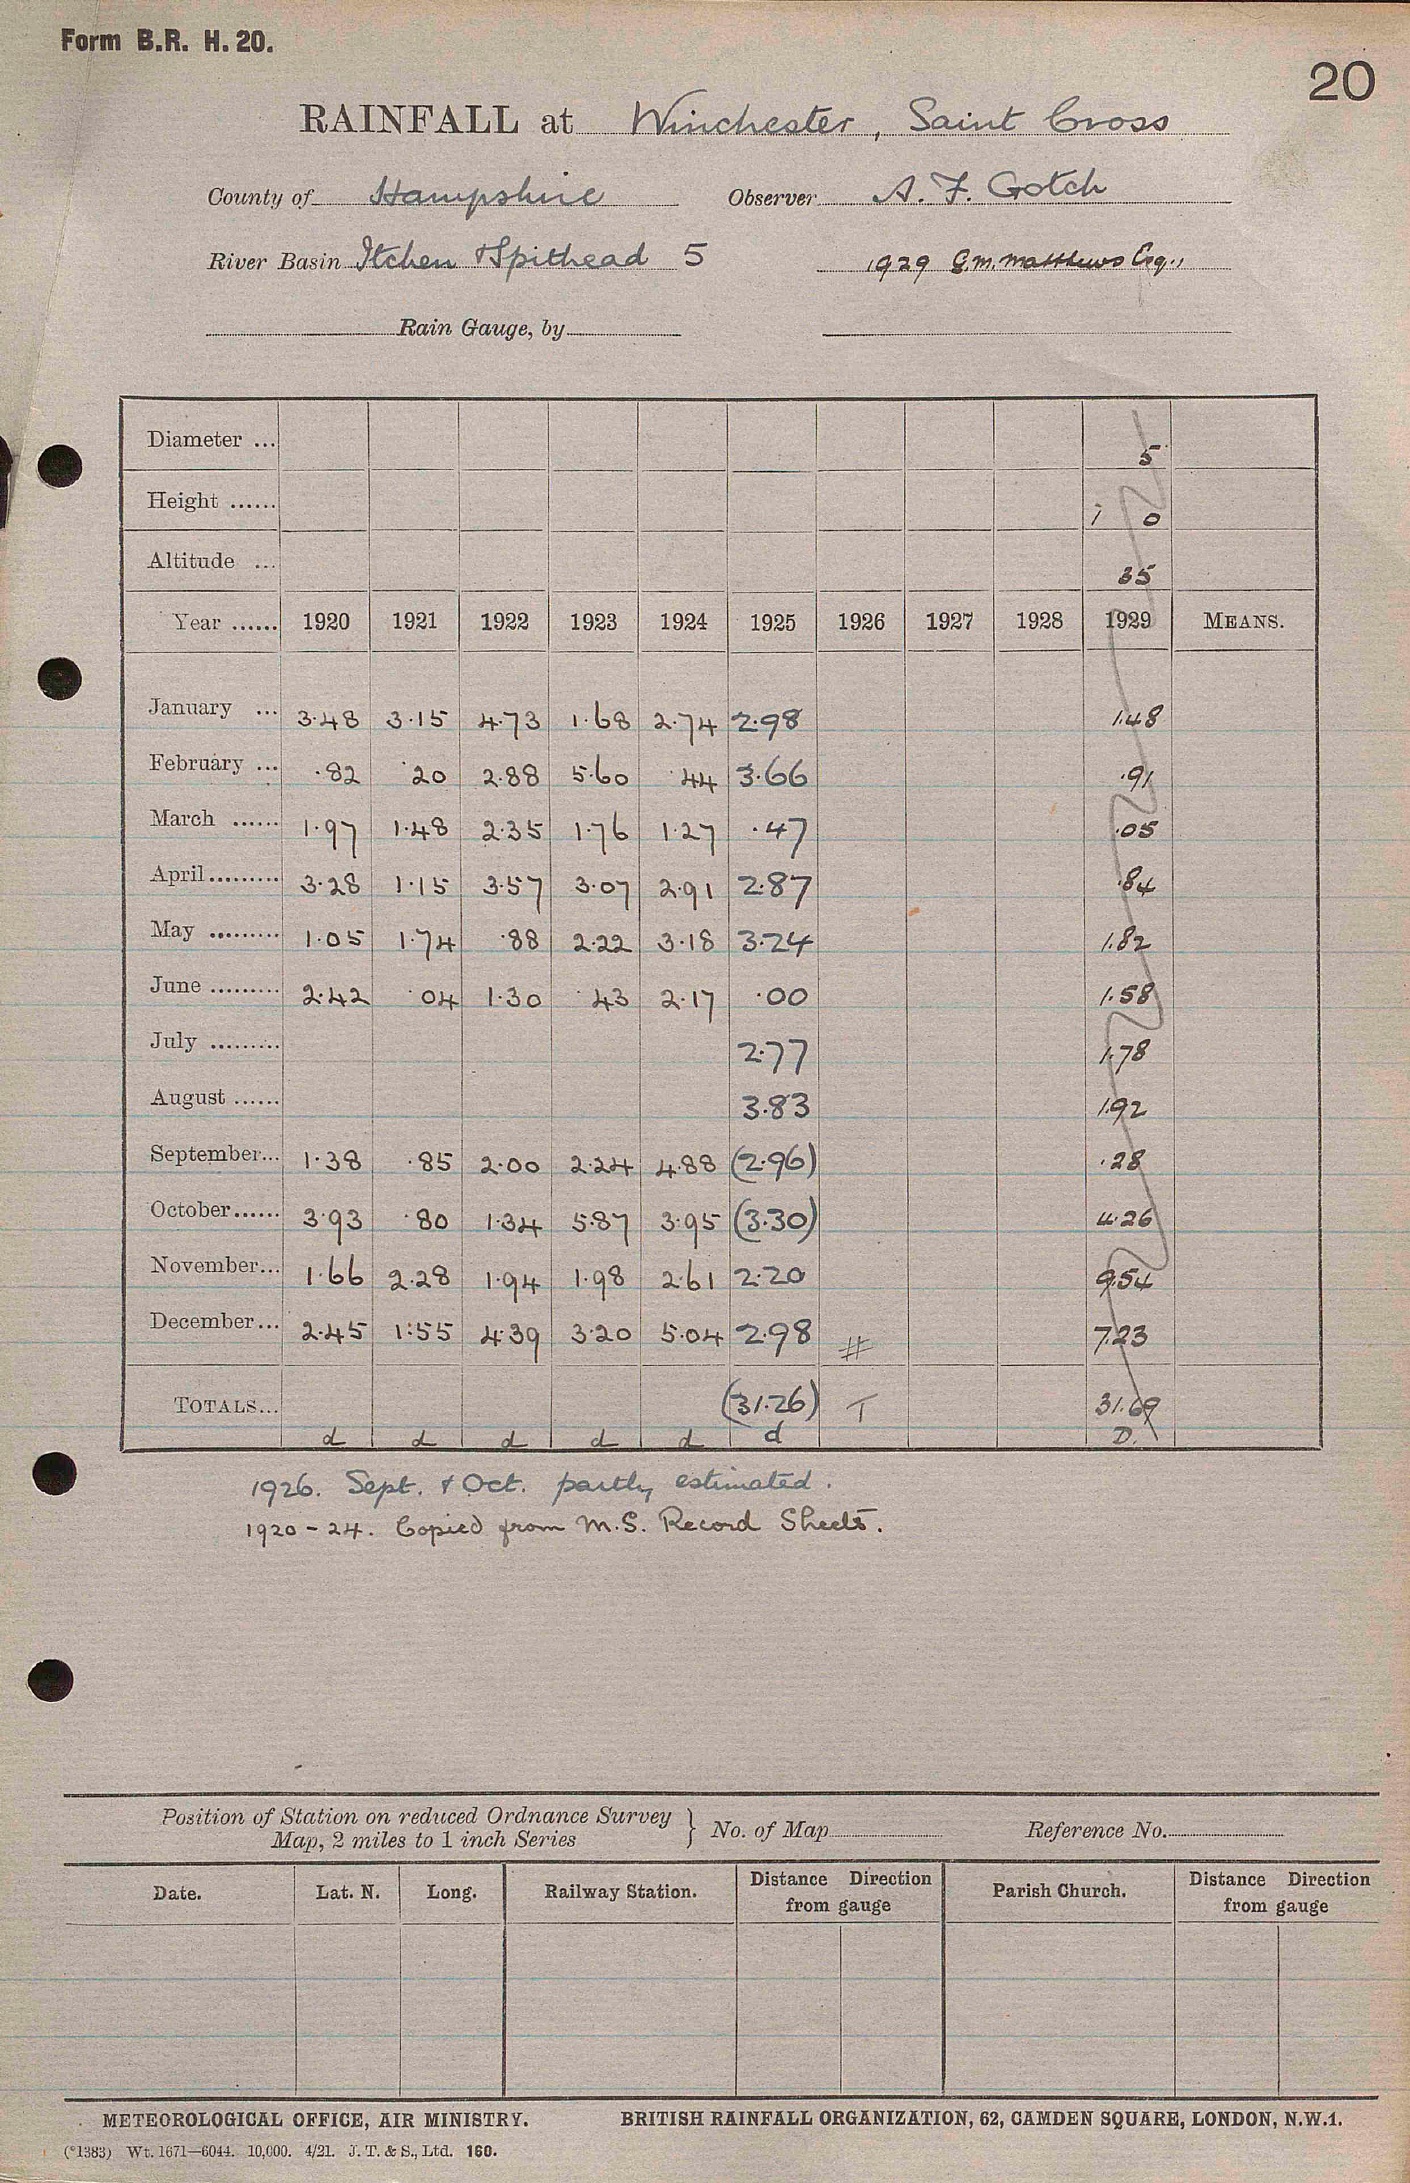 Form B.R. H. 20.
20
RAINFALL at Winchester, Saint Cross
County of Hampshire Observer A. F. Gotch
River Basin Itchen & Spithead 5 1929 G.M. Matthews Esq.,
Rain Gauge, by
Diameter ... 5
Height ...... 1 0
Altitude ... 35
Year ...... 1920 1921 1922 1923 1924 1925 1926 1927 1928 1929 MEANS.
January ... 3.48 3.15 4.73 1.68 2.74 2.98 1.48
February ... .82 .20 2.88 5.60 .44 3.66 .91
March ...... 1.97 1.48 2.35 1.76 1.27 .47 .05
April......... 3.28 1.15 3.57 3.07 2.91 2.87 .84
May ......... 1.05 1.74 .88 2.22 3.18 3.24 1.82
June ......... 2.42 .04 1.30 .43 2.17 .00 1.58
July ......... 2.77 1.78
August ...... 3.83 1.92
September... 1.38 .85 2.00 2.24 4.88 (2.96) .28
October...... 3.93 .80 1.34 5.87 3.95 (3.30) 4.26
November... 1.66 2.28 1.94 1.98 2.61 2.20 9.54
December... 2.45 1.55 4.39 3.20 5.04 2.98 # 7.23
TOTALS... (31.26) T 31.69
d d d d d d D.
1926. Sept. & Oct. partly estimated.
1920 - 24. Copied from M.S. Record Sheets.
Position of Station on reduced Ordnance Survey
Map, 2 miles to 1 inch Series } No. of Map Reference No.
Date. Lat. N. Long. Railway Station. Distance Direction from gauge Parish Church. Distance Direction from gauge
METEOROLOGICAL OFFICE, AIR MINISTRY. BRITISH RAINFALL ORGANIZATION, 62, CAMDEN SQUARE, LONDON, N.W.1.
(*1383) Wt. 1671—6044. 10,000. 4/21. J. T. & S., Ltd. 160.